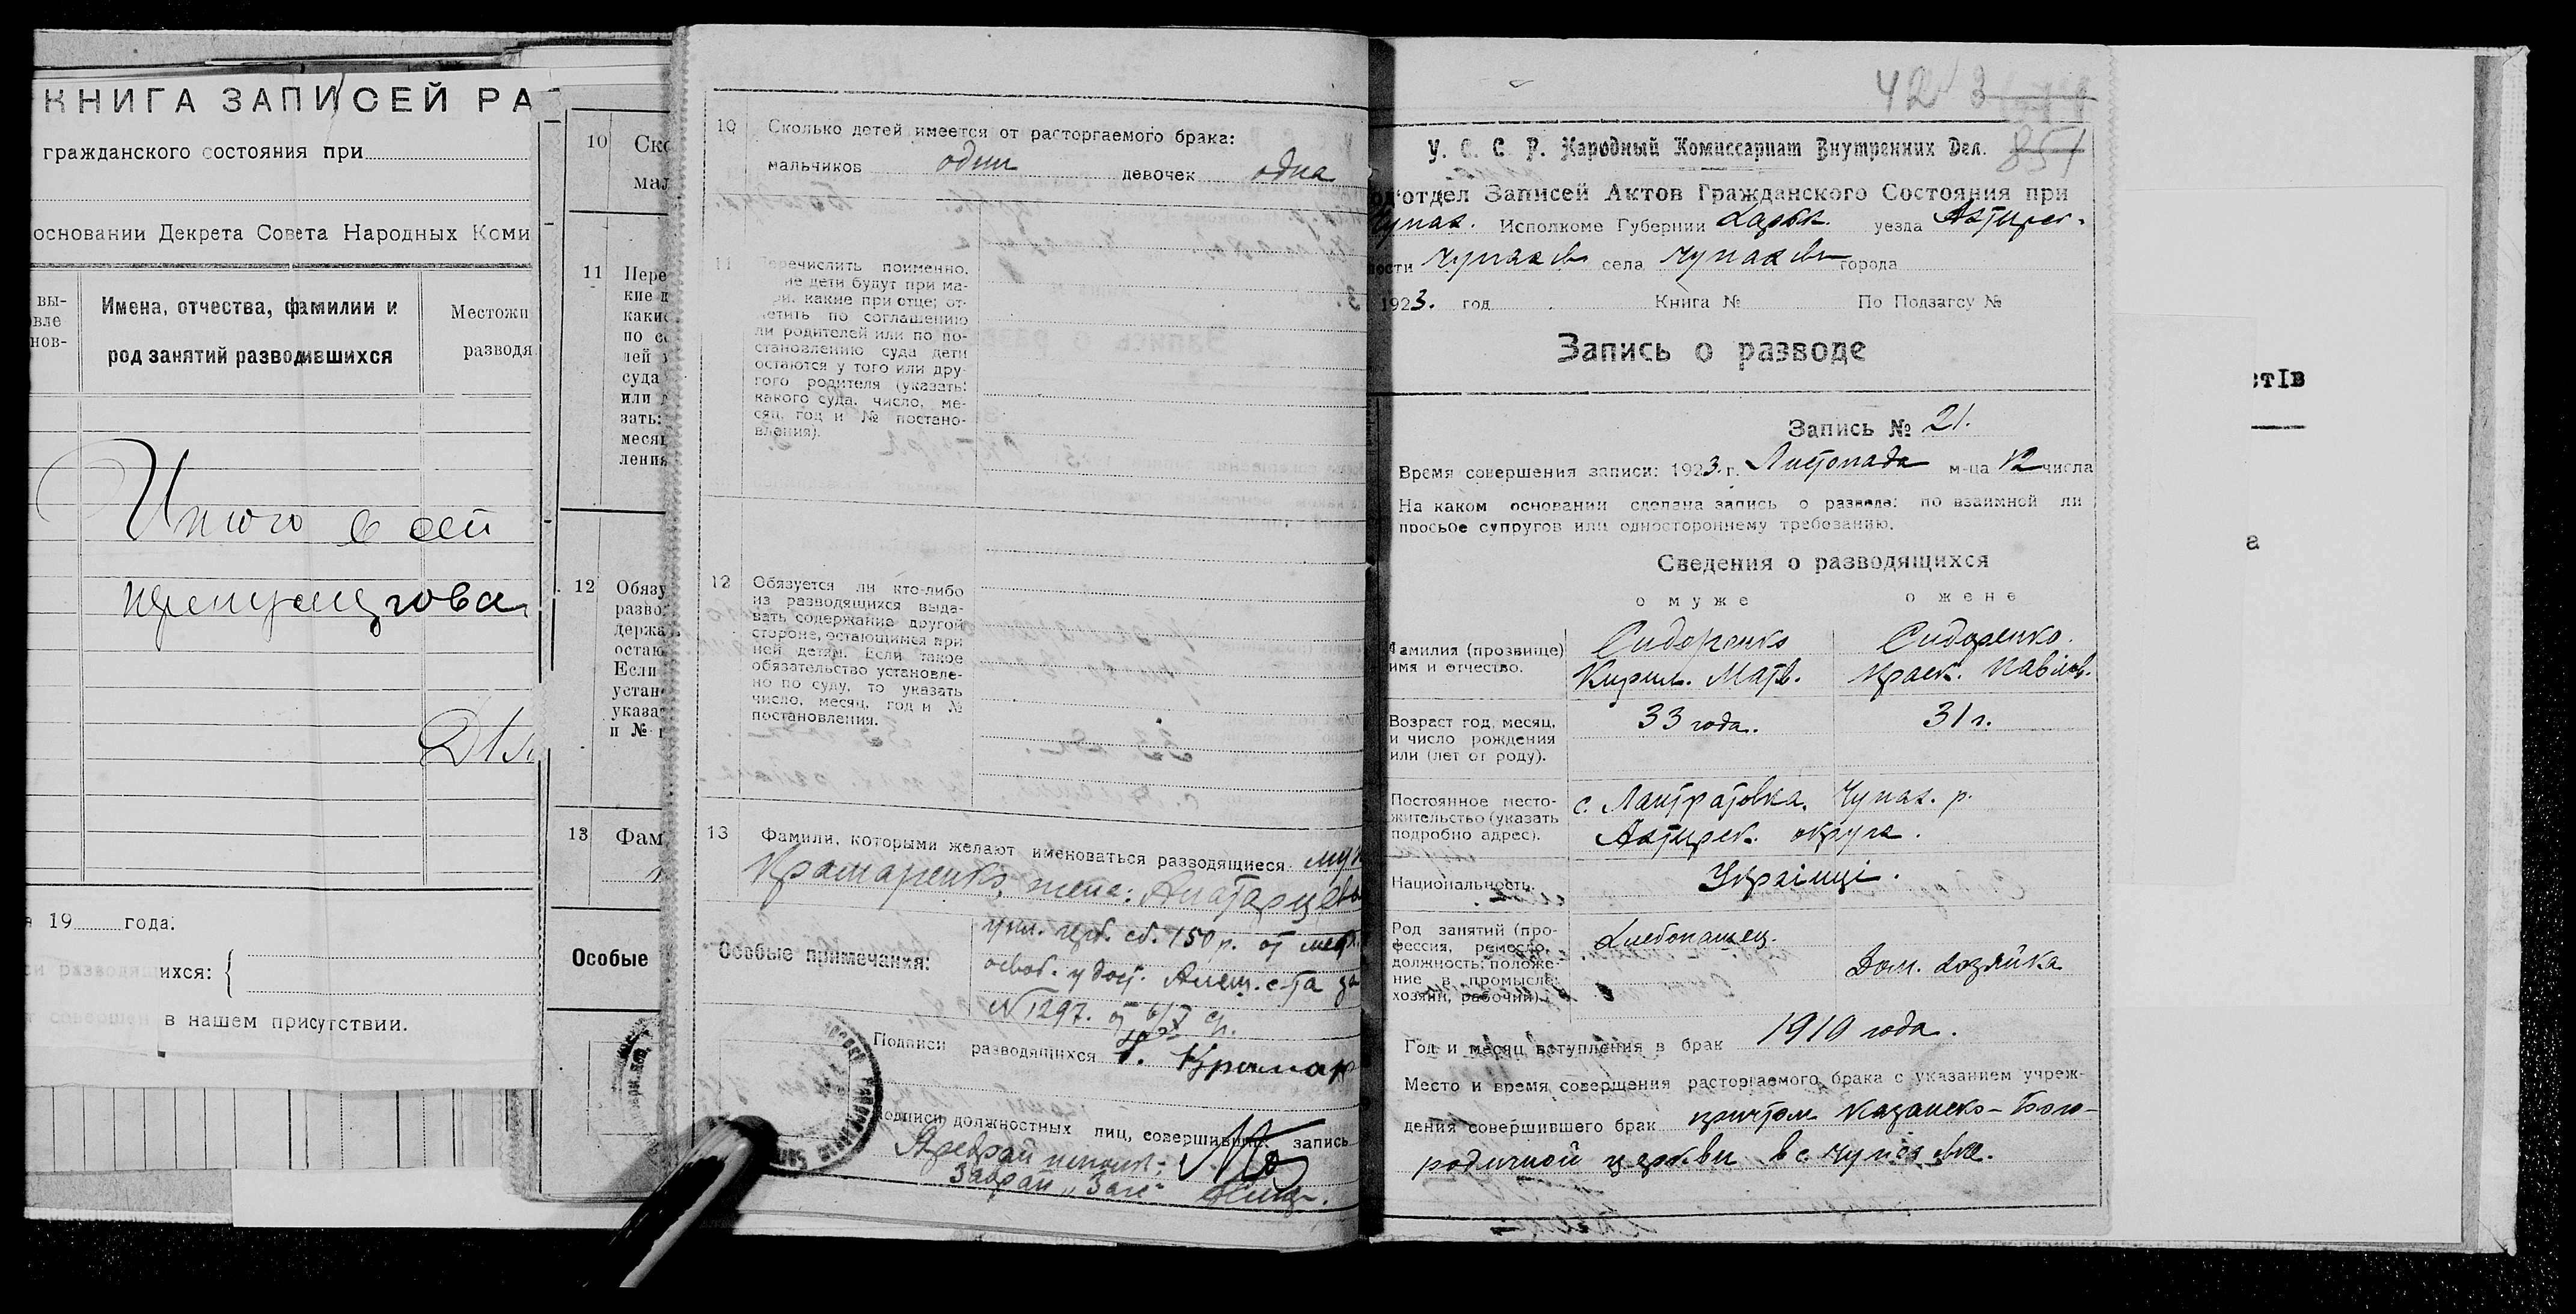 КНИГА ЗАПИСЕЙ РА
гражданского состояния при
основании Декрета Совета Народных Коми
вы-
вле
нов-
Имена, отчества, фамилии и
род занятий разводившихся
Местожи
разводя
19 года.
ихся:
в нашем присутствии.
10 Ско
мал
11 Пере
кие д
какие
по со
лей
суда
или
зать:
месяц
ления
12 Обязу
разво
держа
остаю
Если
устан
указа
и №
13 Фам
Особые
10 Сколько детей имеется от расторгаемого брака:
мальчиков один девочек одна
11 Перечислить поименно,
кие дети будут при ма-
ри, какие при отце; от-
метить по соглашению
ли родителей или по по-
становлению суда дети
остаются у того или дру-
гого родителя (указать:
какого суда, число, ме-
сяц, год и № постано-
вления).
12 Обязуется ли кто-либо
из разводящихся выда-
вать содержание другой
стороне, остающимся при
ней детям. Если такое
обязательство установле-
но по суду, то указать
число, месяц, год и №
постановления.
13 Фамилии, которыми желают именоваться разводящиеся муж
Крамаренко, жена:
Особые примечания:
150 р. от
№ 1297. от
Подписи разводящихся
Подписи должностных лиц, совершивших запись
42 3
851
У. С. С. Р. Народный Комиссариат Внутренних Дел.
од'отдел Записей Актов Гражданского Состояния при
Чупах. Исполкоме Губернии Харьк. уезда Ахтирск.
ости Чупахов села Чупаховка города
1923. год Книга № По Подзагсу №
Запись о разводе
Запись № 21.
Время совершения записи: 1923. г. Листопада м-ца 12 числа
На каком основании сделана запись о разводе: по взаимной ли
просьбе супругов или одностороннему требованию.
Сведения о разводящихся
о муже о жене
Фамилия (прозвище)
имя и отчество.
Сидоренко
Кирил. Матв.
Сидоренко.
Праск. Павлов.
Возраст год, месяц,
и число рождения
или (лет от роду).
33 года.
31 г.
Постоянное место-
жительство (указать
подробно адрес).
с. Лантратовка, Чупах. р.
Ахтирск. округа.
Национальность.
Українці.
Род занятий (про-
фессия, ремесло,
должность; положе-
ние в промысле:
хозяин, рабочий).
Хлебопашец.
Дом. хозяйка
Год и месяц вступления в брак 1910 года.
Место и время совершения расторгаемого брака с указанием учреж-
дения совершившего брак причтом Казанско-Бого-
родичной церкви в с. Чупаховке.
стІв
а